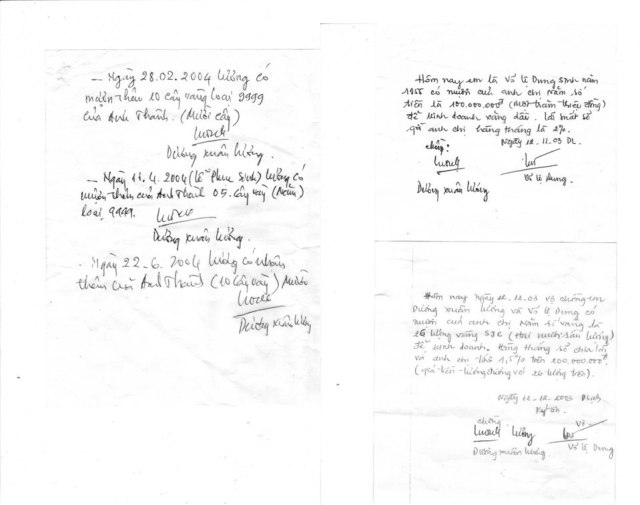 – Ngày 28.02.2004 Lương có
mượn thêm 10 cây vàng loại 9999
của Anh Thành. (Mười cây)
Dương Xuân Lương.
– Ngày 11.4.2004 (Lễ Phục Sinh) Lương có
mượn thêm của Anh Thành 05 cây vàng (Năm)
loại 9999.
Dương Xuân Lương.
. Ngày 22.6.2004 Lương có
thêm của Anh Thành (10 cây vàng) Mười
Dương Xuân Lương
Hôm nay em là Võ Lê Dung sinh năm
1955 có mượn của anh chị Năm số
tiền là 100.000.000đ (Một trăm triệu đồng)
để kinh doanh xăng dầu.
anh chị hằng tháng là 2%.
Ngày 12.12.03 DL.
chồng:
Dương Xuân Lương Võ Lê Dung.
Hôm nay ngày 12.12.03 vợ chồng em
Dương Xuân Lương và Võ Lê Dung có
mượn của anh chị Năm số vàng là
26 lượng vàng SJC (Hai mươi sáu lượng)
để kinh doanh. Hằng tháng sẽ chia lời
và anh chị 1,5% trên 200.000.000đ
(quá tiền tương đương với 26 lượng trên).
Ngày 12.12.2003
Ký tên.
chồng Vợ
Lương
Dương Xuân Lương Võ Lê Dung